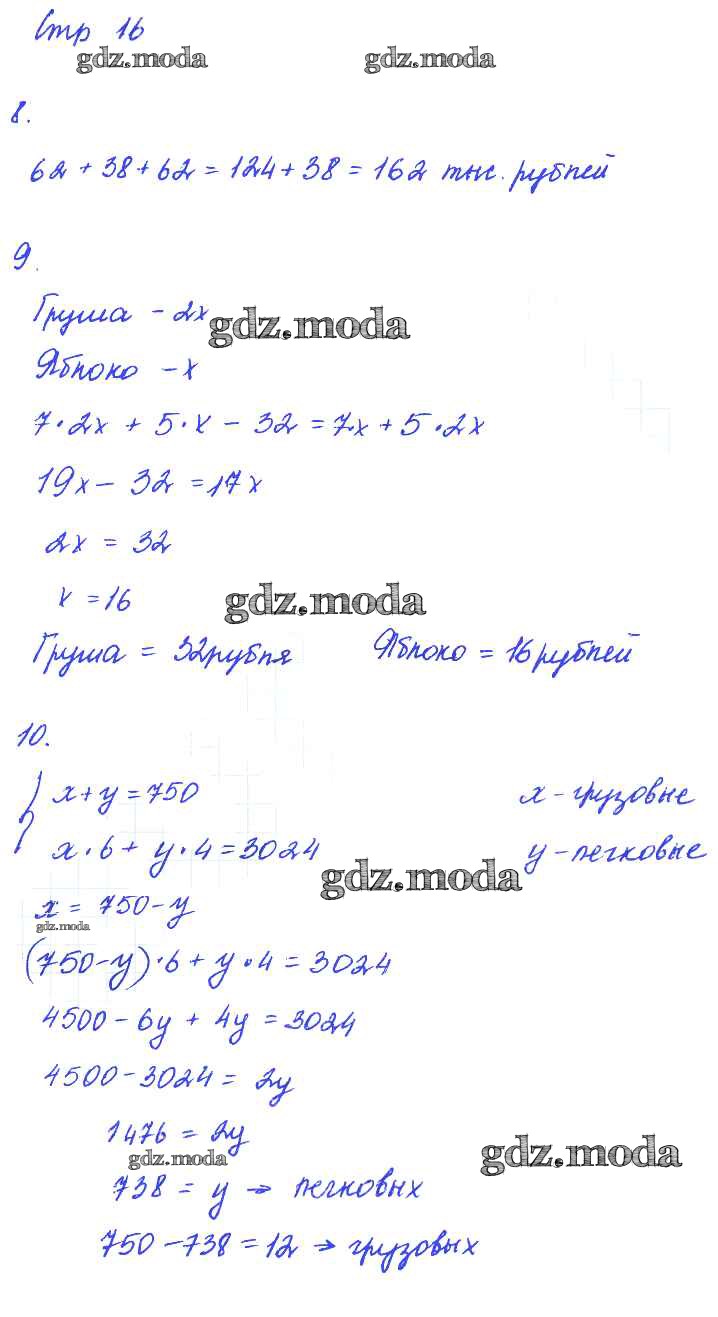 Стр 16
gdz.moda gdz.moda
8.
62 + 38 + 62 = 124 + 38 = 162 тыс. рублей
9.
Груша - 2x
gdz.moda
Яблоко - x
7 · 2x + 5 · x - 32 = 7x + 5 · 2x
19x - 32 = 17x
2x = 32
x = 16
gdz.moda
Груша = 32 рубля Яблоко = 16 рублей
10.
{ x + y = 750 x - грузовые
x · 6 + y · 4 = 3024 y - легковые
gdz.moda
x = 750 - y
gdz.moda
(750 - y) · 6 + y · 4 = 3024
4500 - 6y + 4y = 3024
4500 - 3024 = 2y
1476 = 2y
gdz.moda gdz.moda
738 = y → легковых
750 - 738 = 12 → грузовых